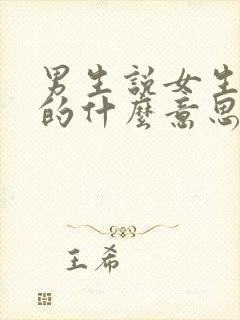 男生說女生
的什麼意思
王希